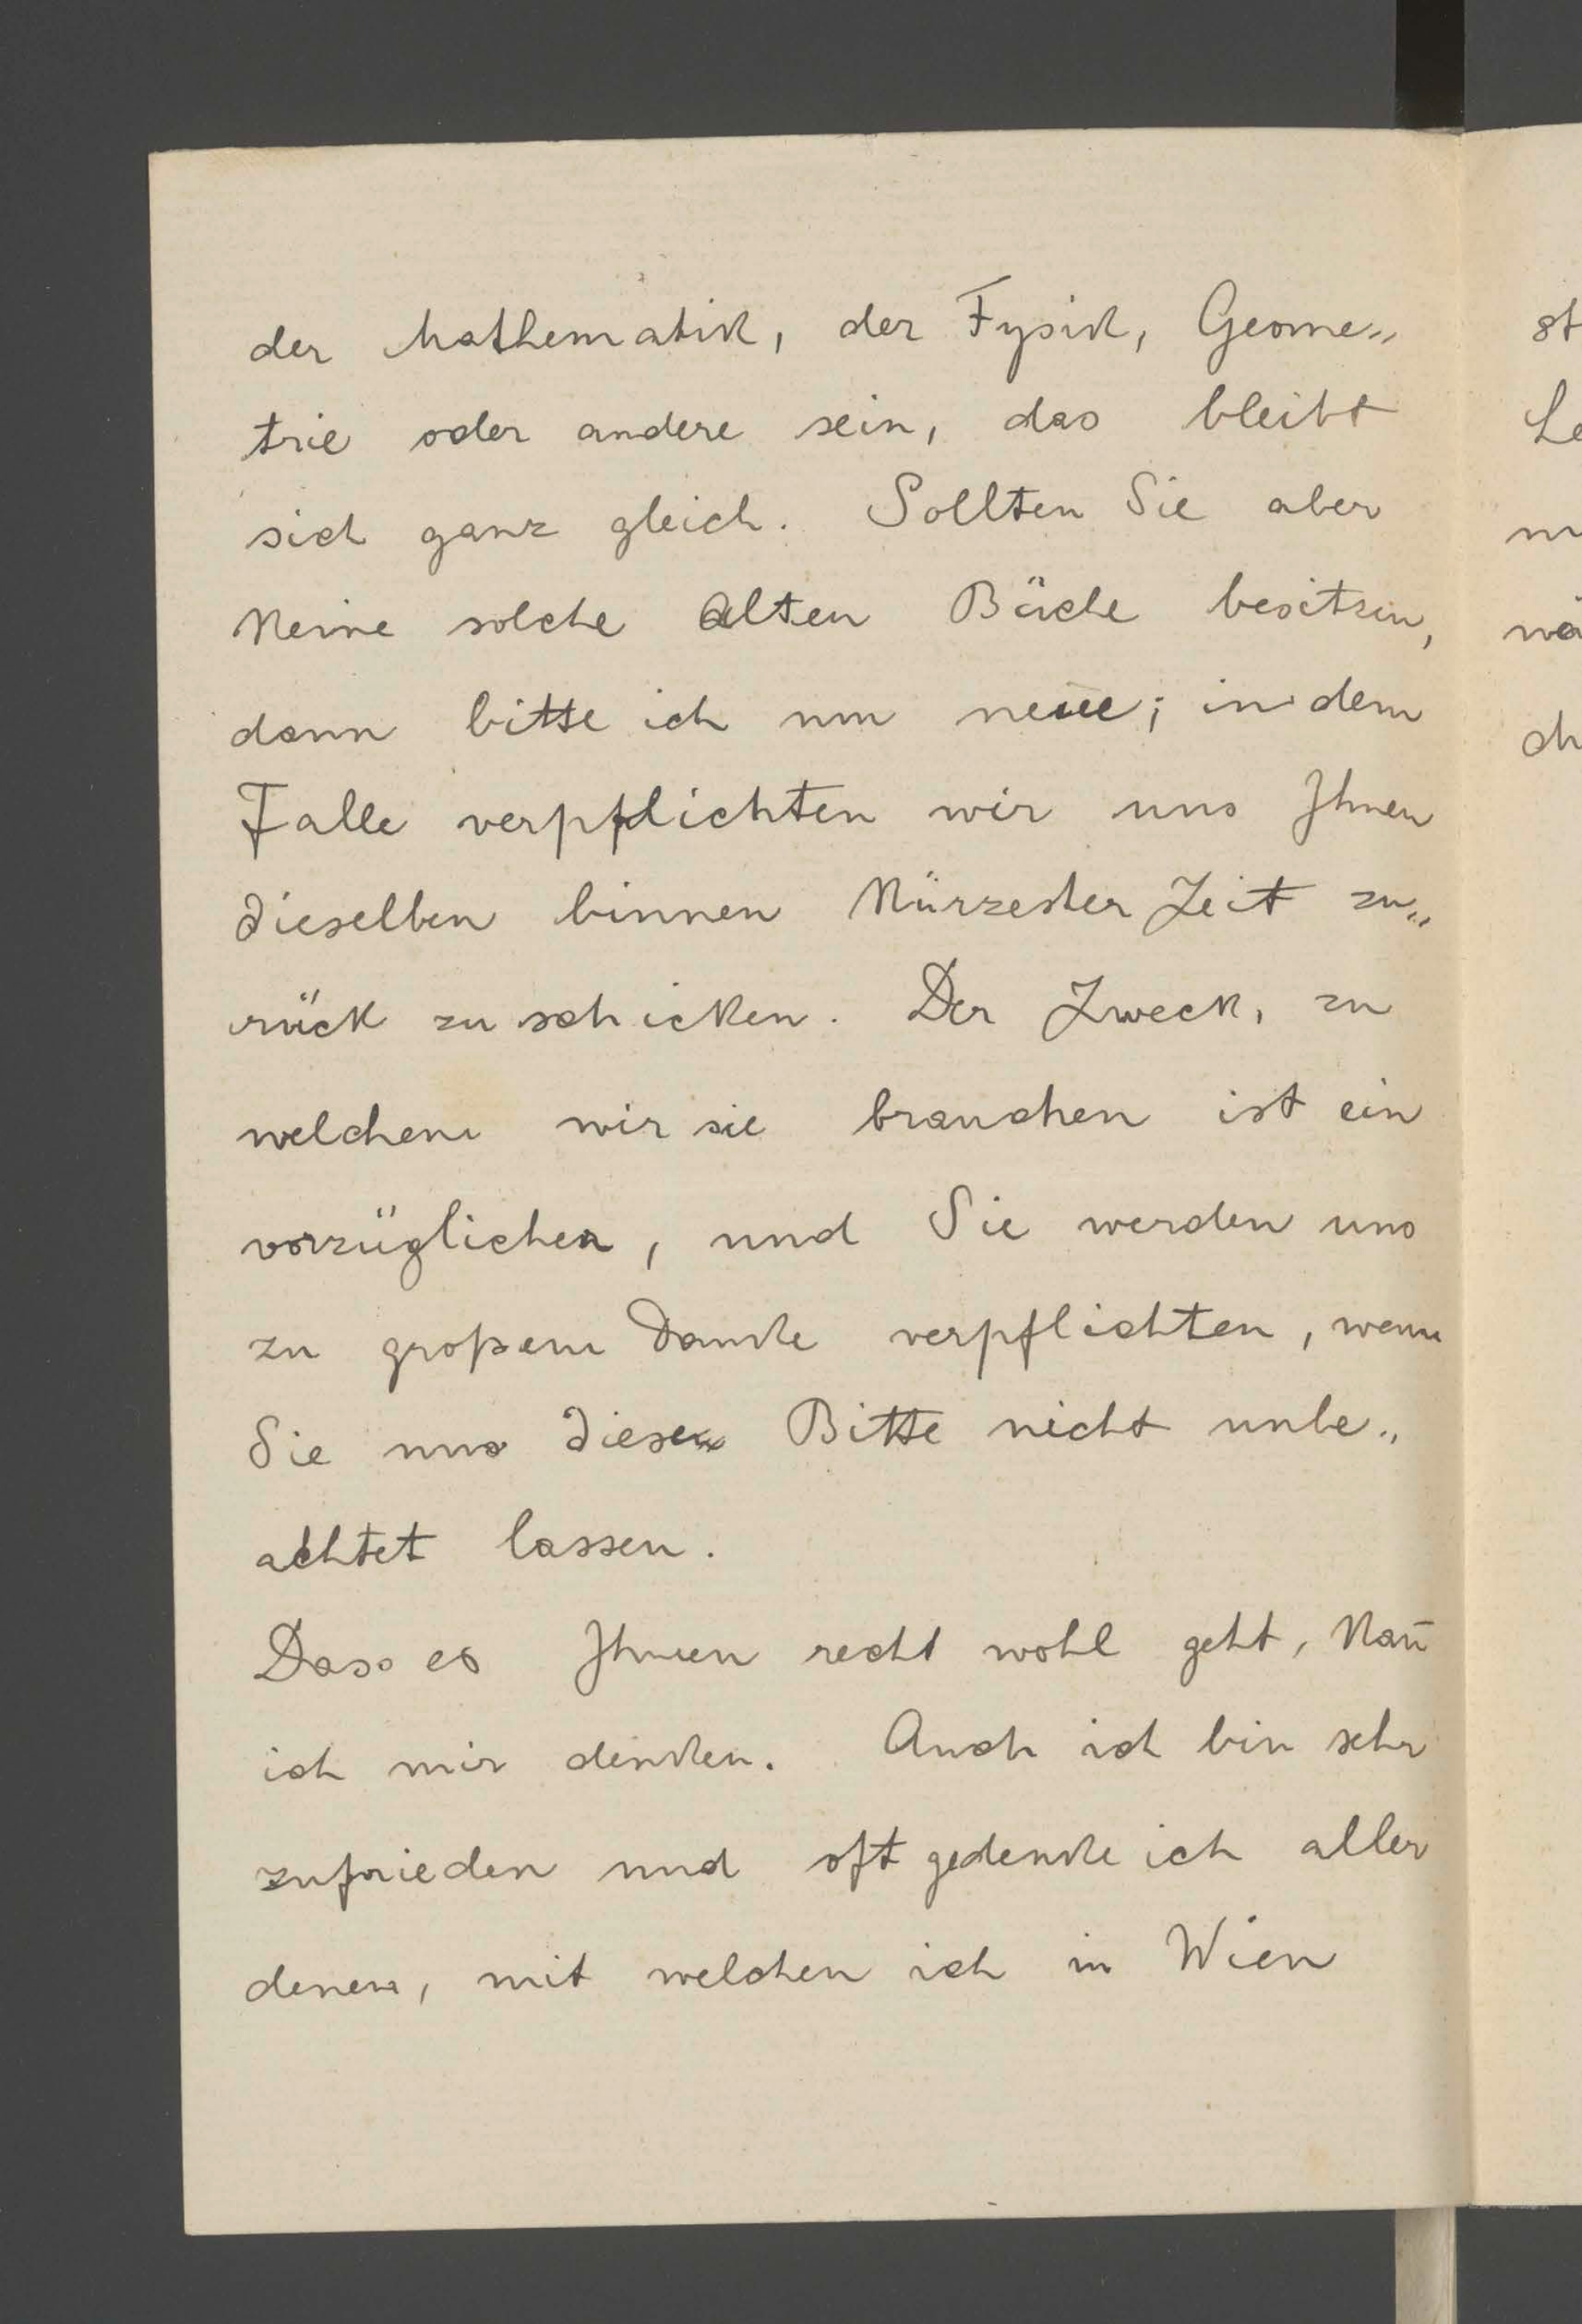 der Mathematik, der Fysik, Geome„
trie oder andere sein, das bleibt
sich ganz gleich. Sollten Sie aber
keine solche alten Büche besitzen,
dann bitte ich um neue; in dem
Falle verpflichten wir uns Ihnen
dieselben binnen kürzester Zeit zu„
rück zu schicken. Der Zweck, zu
welchem wir sie brauchen ist ein
vorzüglicher, und Sie werden uns
zu großem Danke verpflichten, wenn
Sie uns diese Bitte nicht unbe„
achtet lassen.
Dass es Ihnen recht wohl geht, kan̄
ich mir denken. Auch ich bin sehr
zufrieden und oft gedenke ich aller
denen, mit welchen ich in Wien